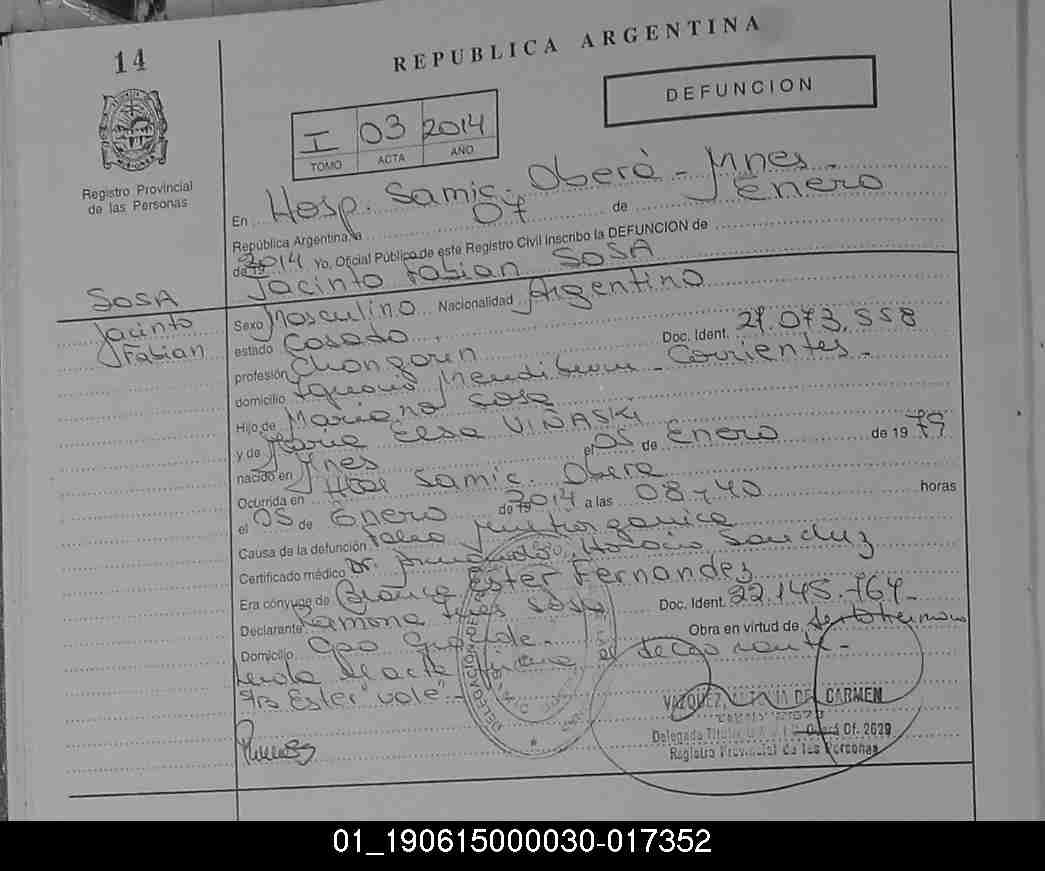 14
REPUBLICA ARGENTINA
DEFUNCION
I 03 2014
TOMO ACTA AÑO
Registro Provincial
de las Personas
En Hosp. Samic. Oberá - Mnes.
República Argentina, a 07 de Enero
de 19 2014 Yo, Oficial Público de este Registro Civil inscribo la DEFUNCION de
Jacinto Fabian SOSA
SOSA
Jacinto
Fabian
Sexo Masculino Nacionalidad Argentino
estado Casado. Doc. Ident. 27.073.558
profesión
domicilio Corrientes.-
Hijo de Mariano Sosa
y de Maria Elsa VIÑASKI
nacido en Mnes el 05 de Enero de 19 79
Ocurrida en Samic. Oberá
el 05 de Enero de 19 2014 a las 08-40 horas
Causa de la defunción
Certificado médico Dr. Horacio
Era cónyuge de Ester Fernandez
Declarante Ramona Ines Sosa Doc. Ident. 22.145.764-
Domicilio Obra en virtud de
acta
Ester "vale"-
VAZQUEZ DEL CARMEN
Delegada Of. 2629
Registro Provincial de las Personas
01_190615000030-017352